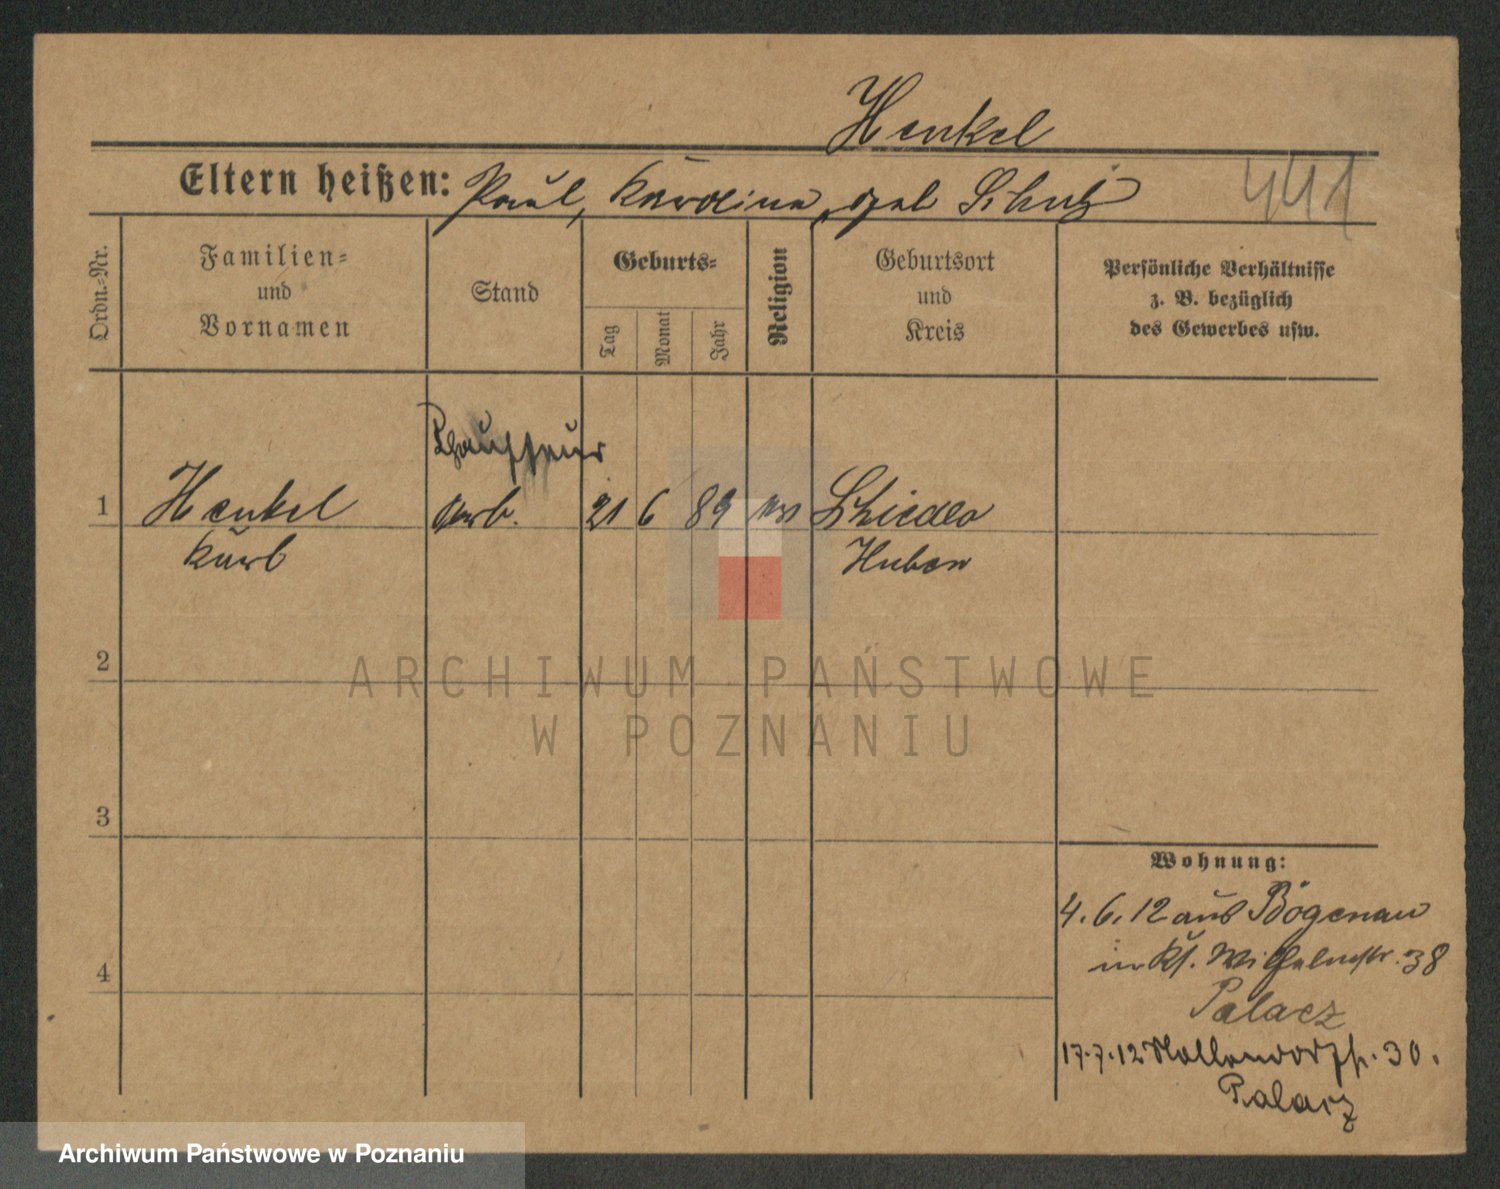 Henkel
Eltern heißen: Paul, Karoline, geb Schulz
441
Ordn.-Nr.
Familien-
und
Vornamen
Stand
Geburts-
Tag
Monat
Jahr
Religion
Geburtsort
und
Kreis
Persönliche Verhältnisse
z. B. bezüglich
des Gewerbes usw.
Chauffeur
1 Henkel arb. 21 6 89
Kurt Huben
2
3
4
Wohnung:
4.6.12 aus Bögenau
in Kl. Wilhelmstr. 38
Palacz
17.7.12 Nollendorfstr. 30.
Palacz
ARCHIWUM PAŃSTWOWE
W POZNANIU
Archiwum Państwowe w Poznaniu